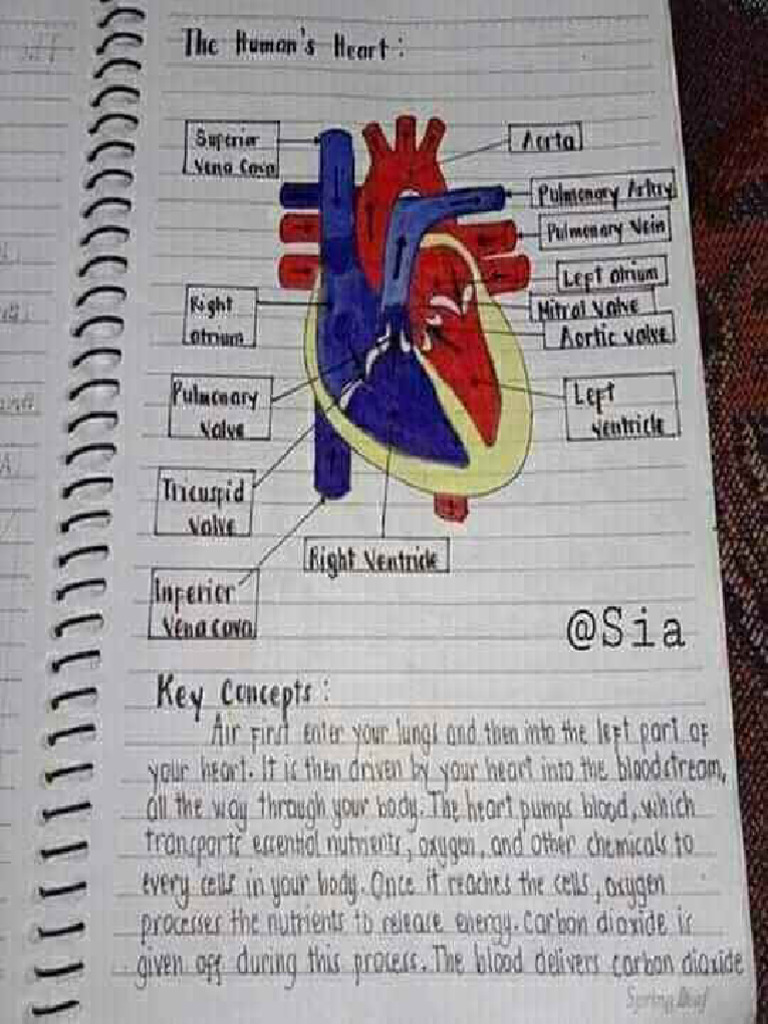 The Human's Heart:
Superior
Vena Cava
Aorta
Pulmonary Artry
Pulmonary Vein
Left atrium
Mitral valve
Aortic valve
Right
atrium
Pulmonary
valve
Left
ventricle
Tircuspid
valve
Right Ventricle
Inperior
Vena cava
@Sia
Key Concepts:
Air First enter your lungs and then into the left part of
your heart. It is then driven by your heart into the bloodstream,
all the way through your body. The heart pumps blood, which
transports essential nutrients, oxygen, and other chemicals to
every cells in your body. Once it reaches the cells, oxygen
processes the nutrients to release energy. Carbon dioxide is
given off during this process. The blood delivers carbon dioxide
Spring